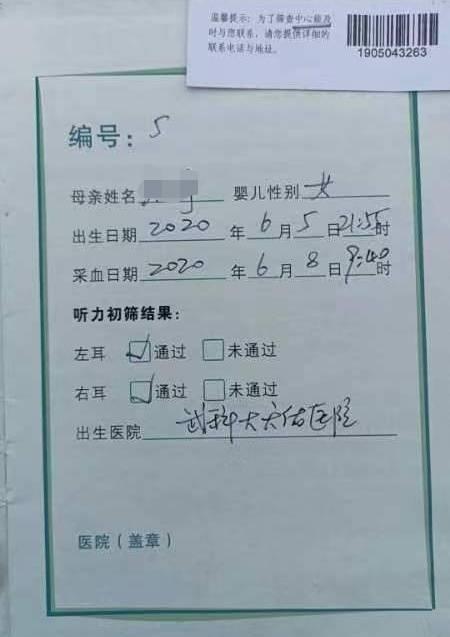 温馨提示:为了筛查中心能及
时与您联系,请您提供详细的
联系电话与地址。
1905043263
编号:5
母亲姓名 婴儿性别 女
出生日期 2020 年 6 月 5 日 21:55 时
采血日期 2020 年 6 月 8 日 9:40 时
听力初筛结果:
左耳 ☑通过 □未通过
右耳 ☑通过 □未通过
出生医院 武科大天佑医院
医院(盖章)